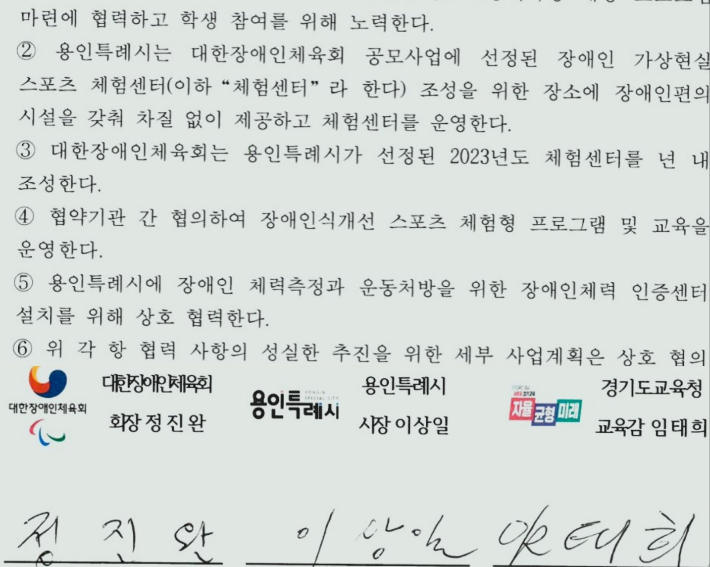 마련에 협력하고 학생 참여를 위해 노력한다.
② 용인특례시는 대한장애인체육회 공모사업에 선정된 장애인 가상현실
스포츠 체험센터(이하 “체험센터” 라 한다) 조성을 위한 장소에 장애인편의
시설을 갖춰 차질 없이 제공하고 체험센터를 운영한다.
③ 대한장애인체육회는 용인특례시가 선정된 2023년도 체험센터를 년 내
조성한다.
④ 협약기관 간 협의하여 장애인식개선 스포츠 체험형 프로그램 및 교육을
운영한다.
⑤ 용인특례시에 장애인 체력측정과 운동처방을 위한 장애인체력 인증센터
설치를 위해 상호 협력한다.
⑥ 위 각 항 협력 사항의 성실한 추진을 위한 세부 사업계획은 상호 협의
대한장애인체육회 용인특례시 경기도교육청
대한장애인체육회 용인특례시 자율 균형 미래
회장 정 진 완 시장 이상일 교육감 임태희
정 진 완 이 상 일 태 희